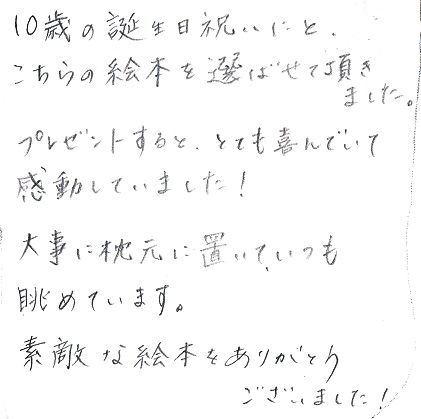 10歳の誕生日祝いにと、
こちらの絵本を選ばせて頂き
ました。
プレゼントすると、とても喜んでいて
感動していました!
大事に枕元に置いていつも
眺めています。
素敵な絵本をありがとう
ございました!